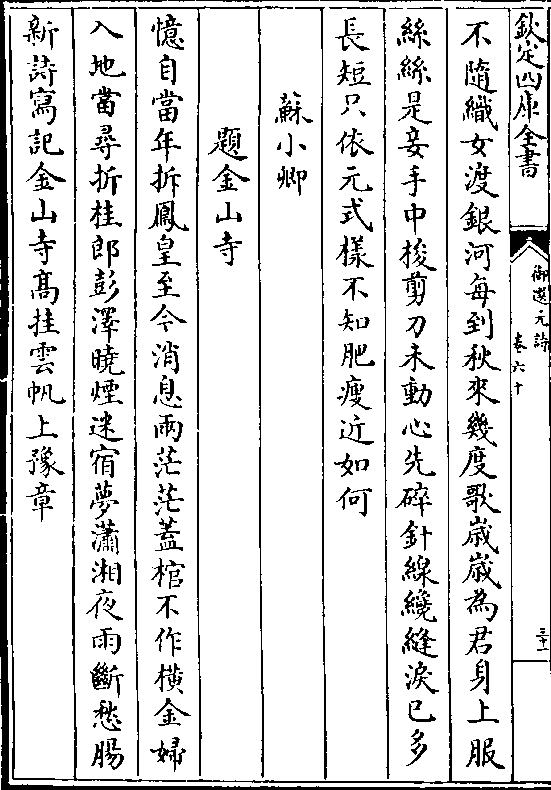 欽定四庫全書
御選元詩
卷六十
三十一
不隨織女渡銀河每到秋來幾度歌嵗嵗為君身上服
絲絲是妾手中梭剪刀未動心先碎針線纔縫淚已多
長短只依元式樣不知肥瘦近如何
蘇小卿
題金山寺
憶自當年折鳳皇至今消息兩茫茫蓋棺不作橫金婦
入地當尋折桂郎彭澤曉煙迷宿夢瀟湘夜雨斷愁腸
新詩寫記金山寺髙挂雲帆上豫章